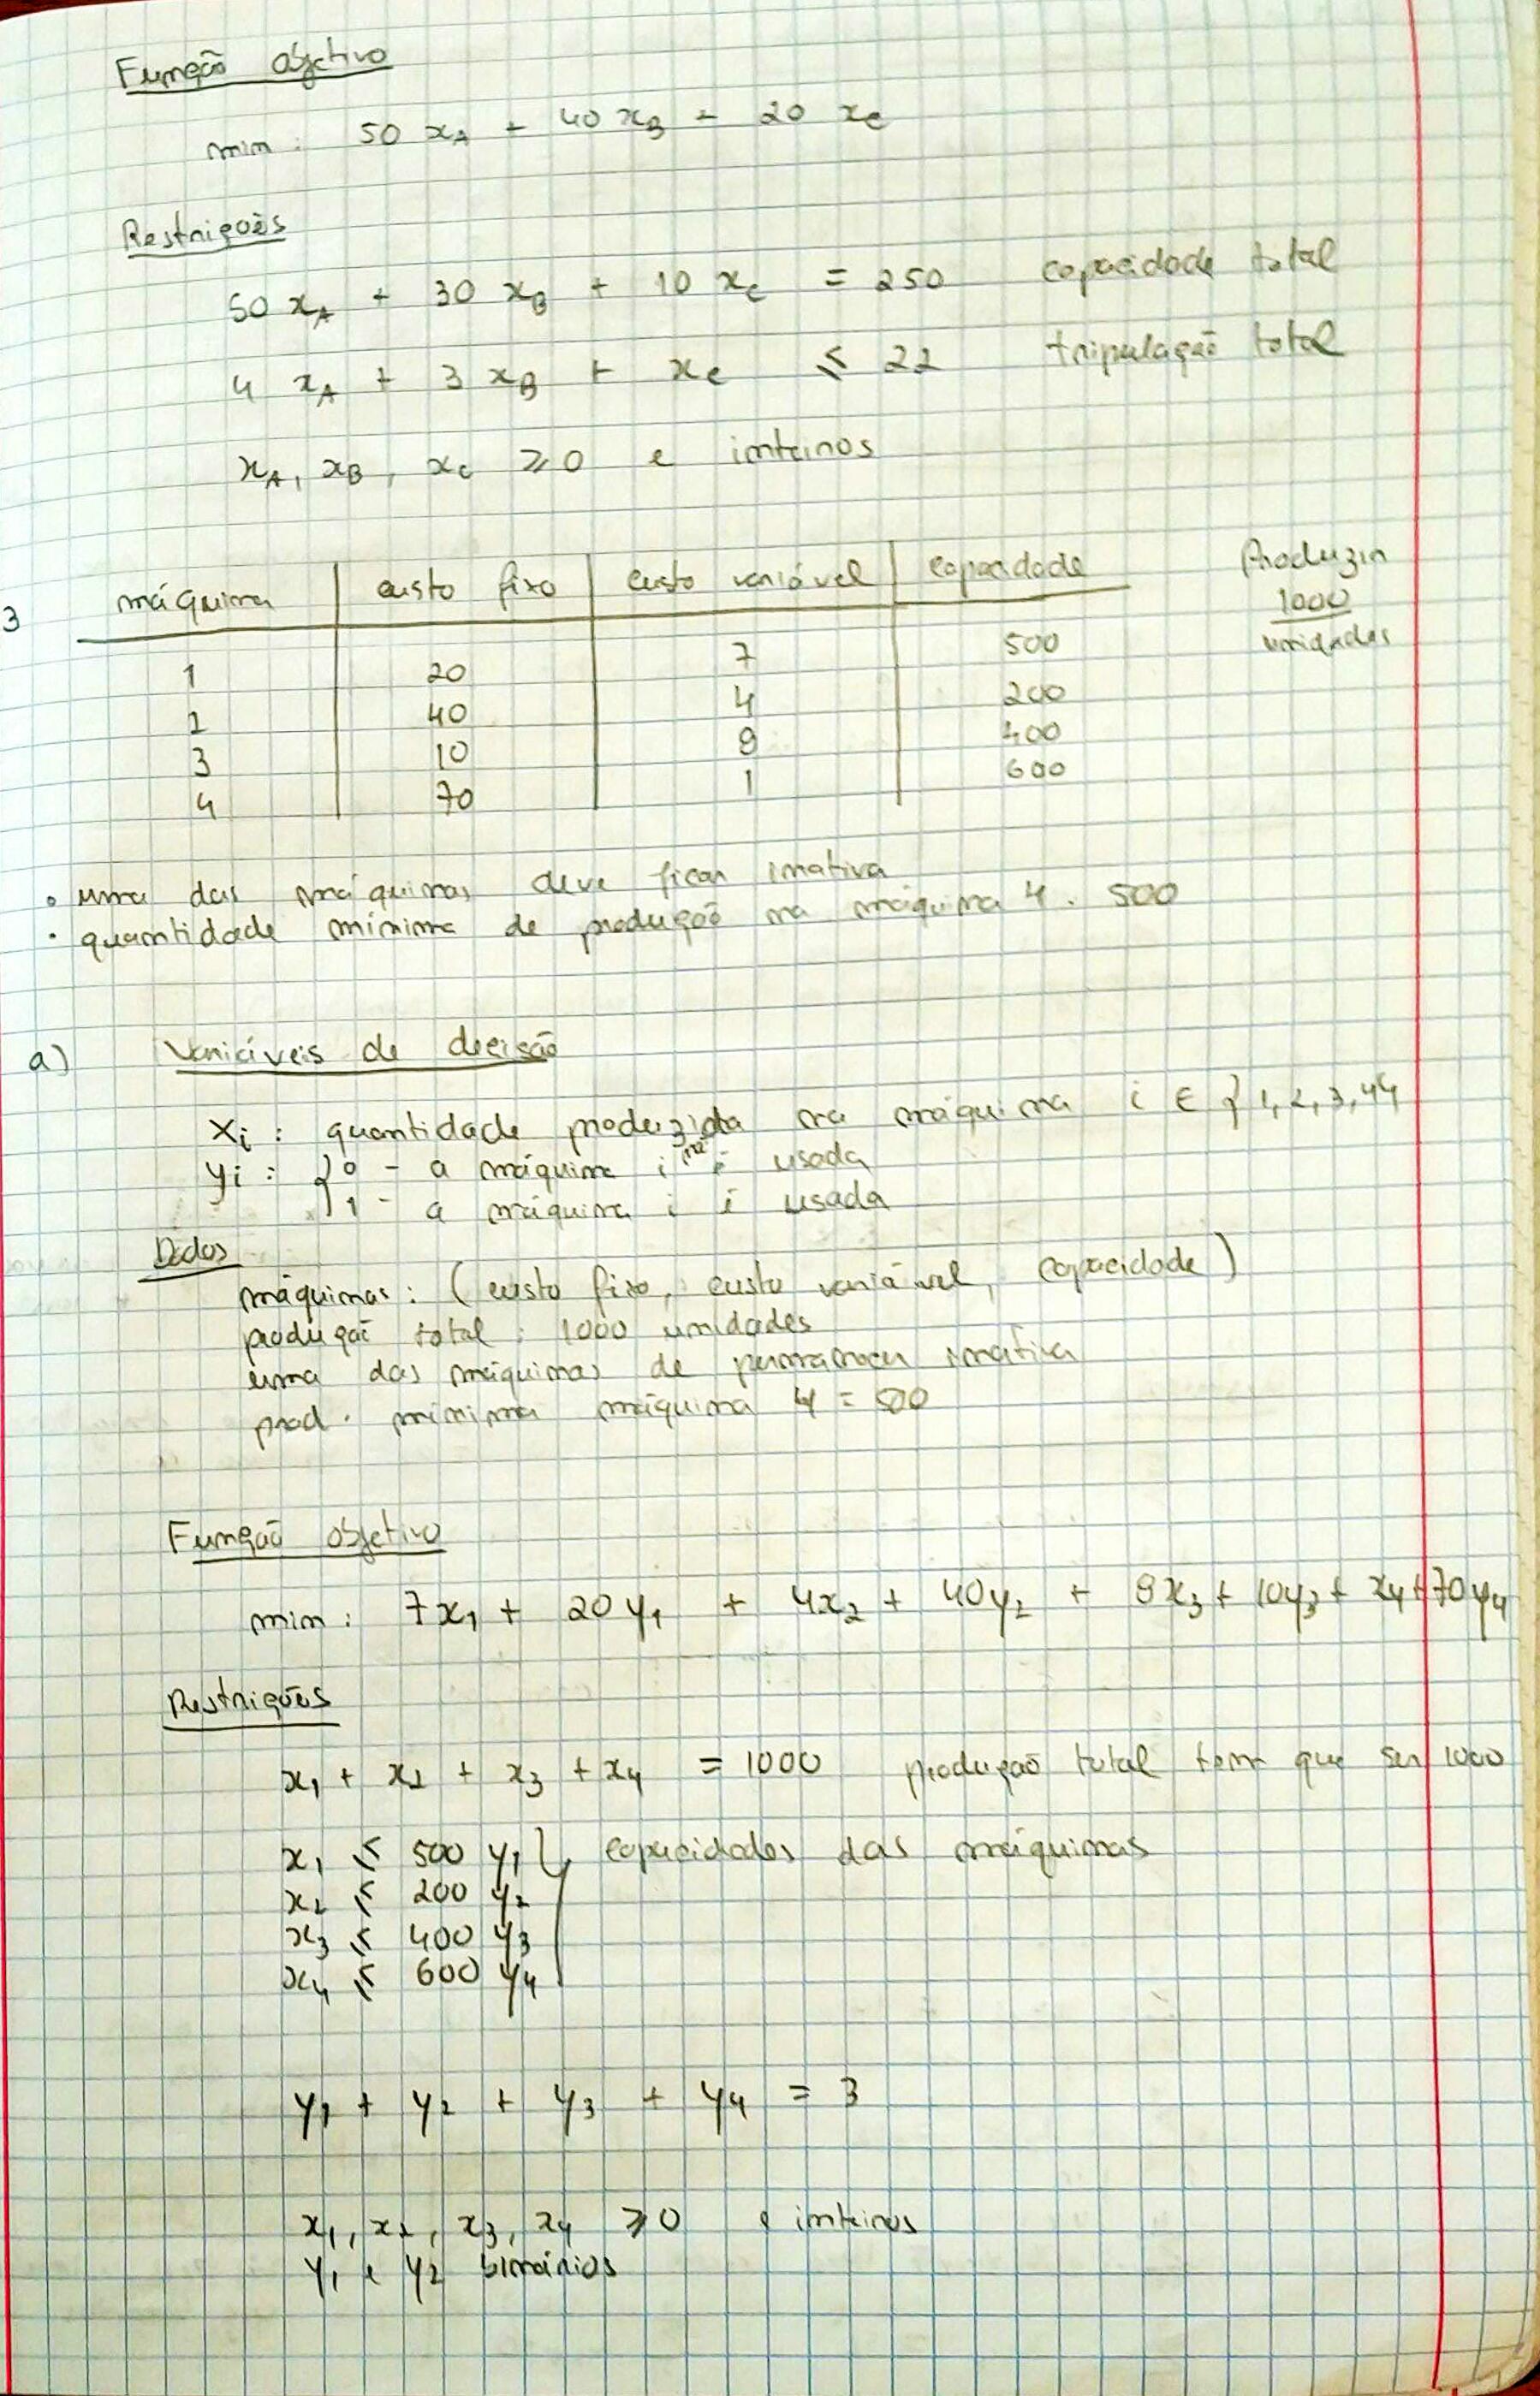 Função objetivo
min: 50 xA + 40 xB + 20 xC
Restrições
50 xA + 30 xB + 10 xC = 250 capacidade total
4 xA + 3 xB + xC ≤ 22 tripulação total
xA, xB, xC ≥ 0 e inteiros
3 máquina custo fixo custo variável capacidade Produzir 1000 unidades
1 20 7 500
2 40 4 200
3 10 9 400
4 70 1 600
• uma das máquinas deve ficar inativa
• quantidade mínima de produção na máquina 4. 500
a) Variáveis de decisão
xi: quantidade produzida na máquina i ∈ {1,2,3,4}
yi: { 0 - a máquina i não é usada
1 - a máquina i é usada
Dados
máquinas: (custo fixo, custo variável, capacidade)
produção total: 1000 unidades
uma das máquinas de permanecer inativa
prod. mínima máquina 4 = 500
Função objetivo
min: 7x1 + 20y1 + 4x2 + 40y2 + 9x3 + 10y3 + x4 + 70y4
Restrições
x1 + x2 + x3 + x4 = 1000 produção total tem que ser 1000
x1 ≤ 500 y1 } capacidades das máquinas
x2 ≤ 200 y2
x3 ≤ 400 y3
x4 ≤ 600 y4
y1 + y2 + y3 + y4 = 3
x1, x2, x3, x4 ≥ 0 e inteiros
y1 e y2 binários